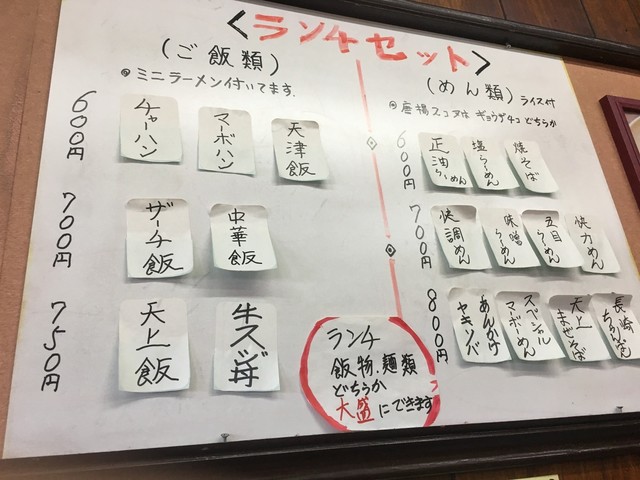 <ランチセット>
(ご飯類)
◎ミニラーメン付いてます.
600円
チャーハン
マーボハン
天津飯
700円
ザーチ飯
中華飯
750円
天上飯
牛スジ丼
(めん類)ライス付
◎唐揚2コ又は ギョウザ4コ どちらか
600円
正油らーめん
塩らーめん
焼そば
700円
快調めん
味噌らーめん
五目らーめん
快力めん
800円
あんかけヤキソバ
スペシャルマーボーめん
天上まぜそば
長崎ちゃんぽん
ランチ
飯物.麺類
どちらか
大盛にできます